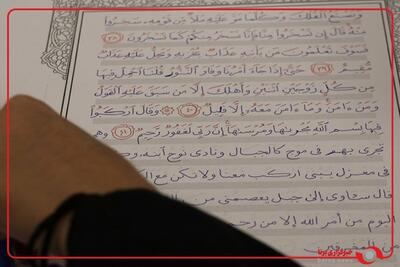 وَيَصْنَعُ الْفُلْكَ وَكُلَّمَا مَرَّ عَلَيْهِ مَلَأٌ مِنْ قَوْمِهِ سَخِرُوا
مِنْهُ قَالَ إِنْ تَسْخَرُوا مِنَّا فَإِنَّا نَسْخَرُ مِنْكُمْ كَمَا تَسْخَرُونَ ﴿٣٨﴾
فَسَوْفَ تَعْلَمُونَ مَنْ يَأْتِيهِ عَذَابٌ يُخْزِيهِ وَيَحِلُّ عَلَيْهِ عَذَابٌ
مُقِيمٌ ﴿٣٩﴾ حَتَّى إِذَا جَاءَ أَمْرُنَا وَفَارَ التَّنُّورُ قُلْنَا احْمِلْ فِيهَا
مِنْ كُلٍّ زَوْجَيْنِ اثْنَيْنِ وَأَهْلَكَ إِلَّا مَنْ سَبَقَ عَلَيْهِ الْقَوْلُ
وَمَنْ ءَامَنَ وَمَا ءَامَنَ مَعَهُ إِلَّا قَلِيلٌ ﴿٤٠﴾ وَقَالَ ارْكَبُوا
فِيهَا بِسْمِ اللَّهِ مَجْرَاهَا وَمُرْسَاهَا إِنَّ رَبِّي لَغَفُورٌ رَحِيمٌ ﴿٤١﴾ وهي
تجرى بهم في موج كالجبال ونادى نوح ابنه وك
في معزل يبنى اركب معنا ولا تكن مع ال
قال ساوى إلى جبل يعصمني من
اليوم من أمر الله إلا من رحـ
من المغرقين
خبرگزاری برنا